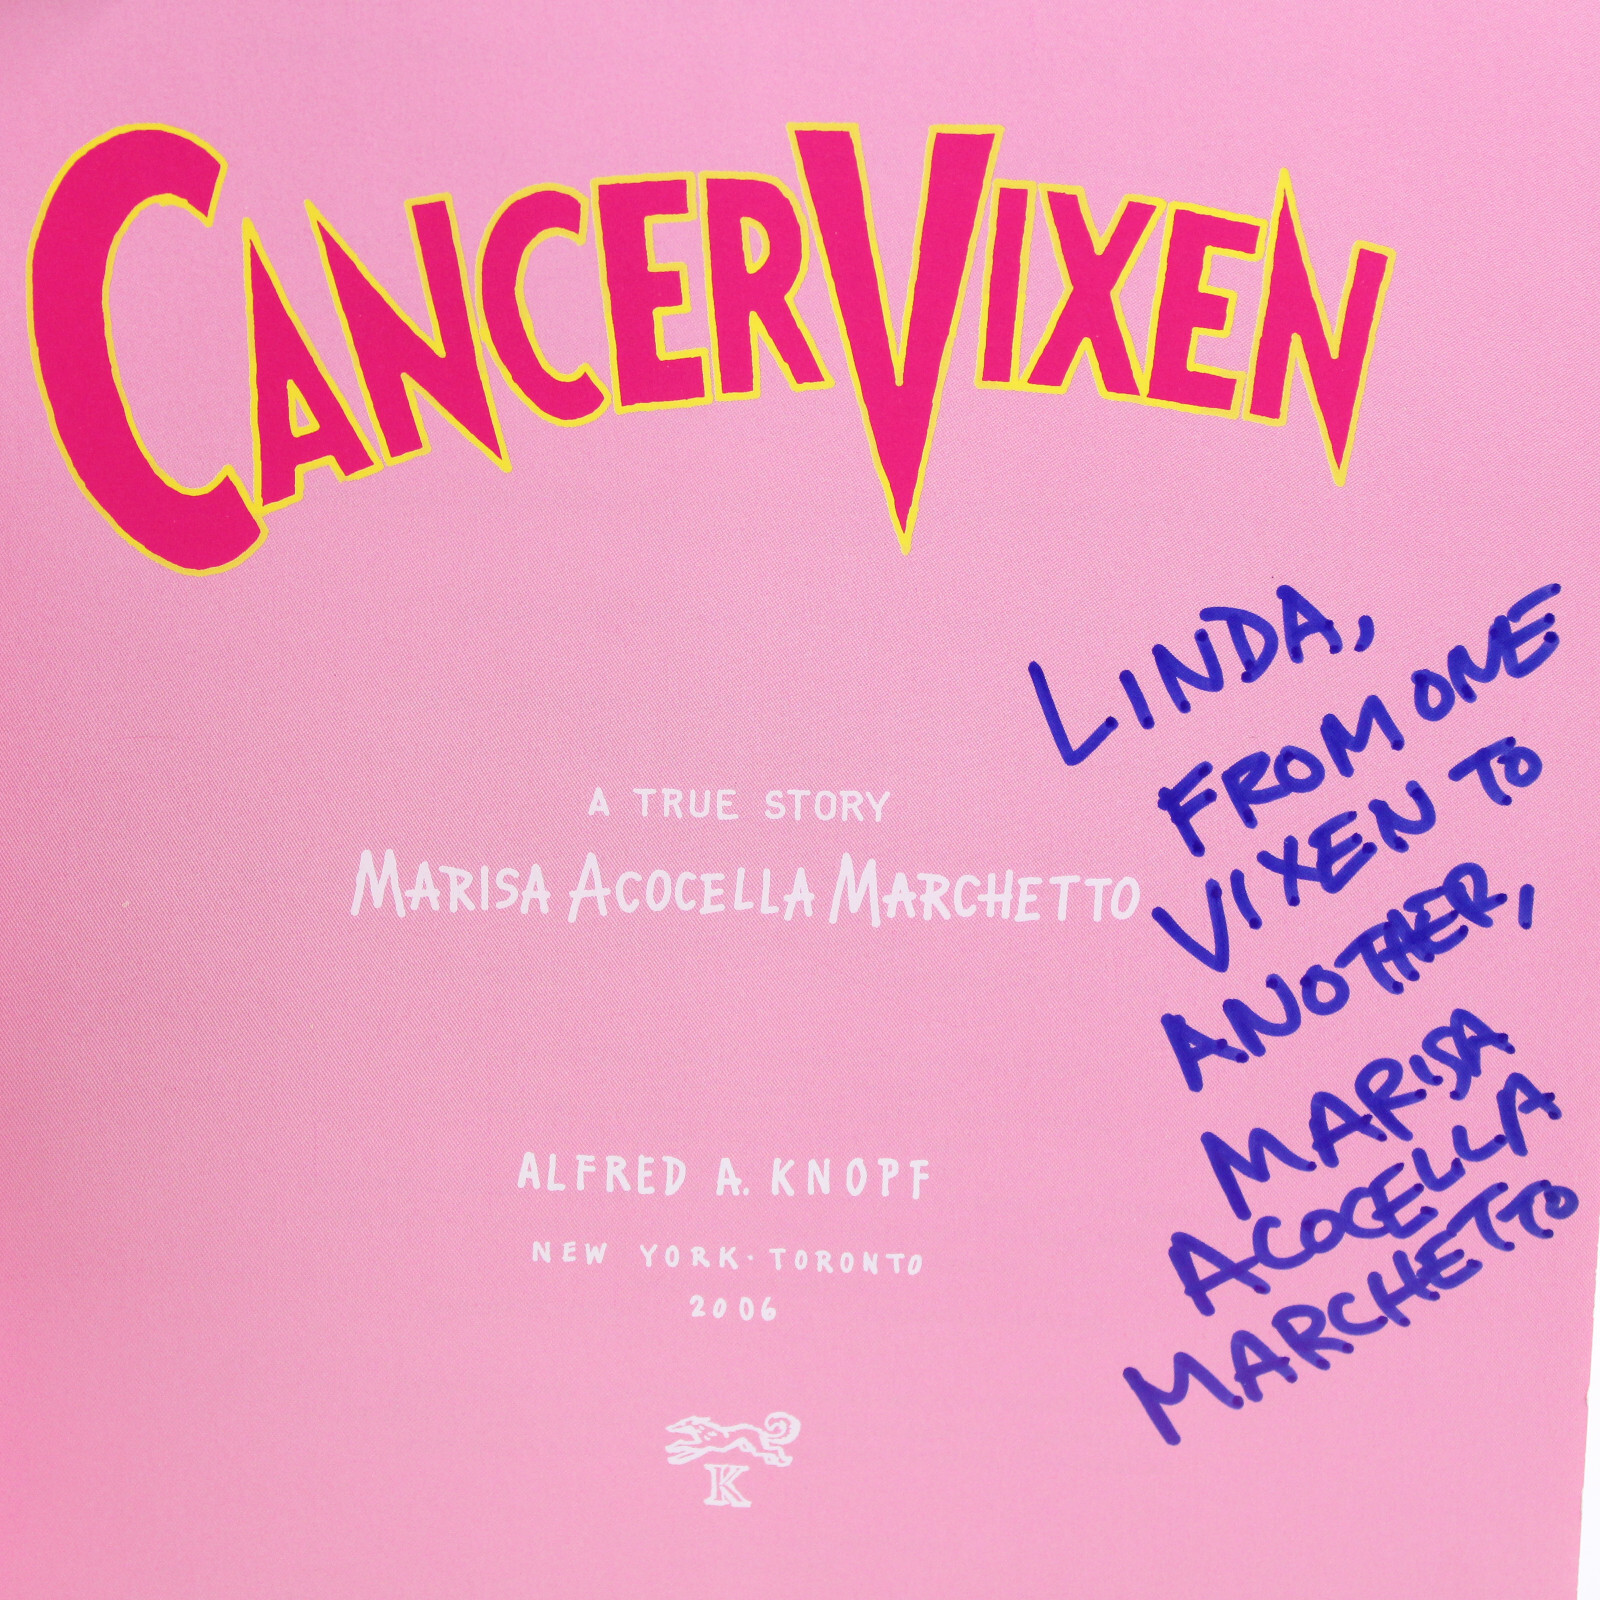 CANCER VIXEN
A TRUE STORY
MARISA ACOCELLA MARCHETTO
ALFRED A. KNOPF
NEW YORK · TORONTO
2006
K
LINDA,
FROM ONE
VIXEN TO
ANOTHER,
MARISA
ACOCELLA
MARCHETTO